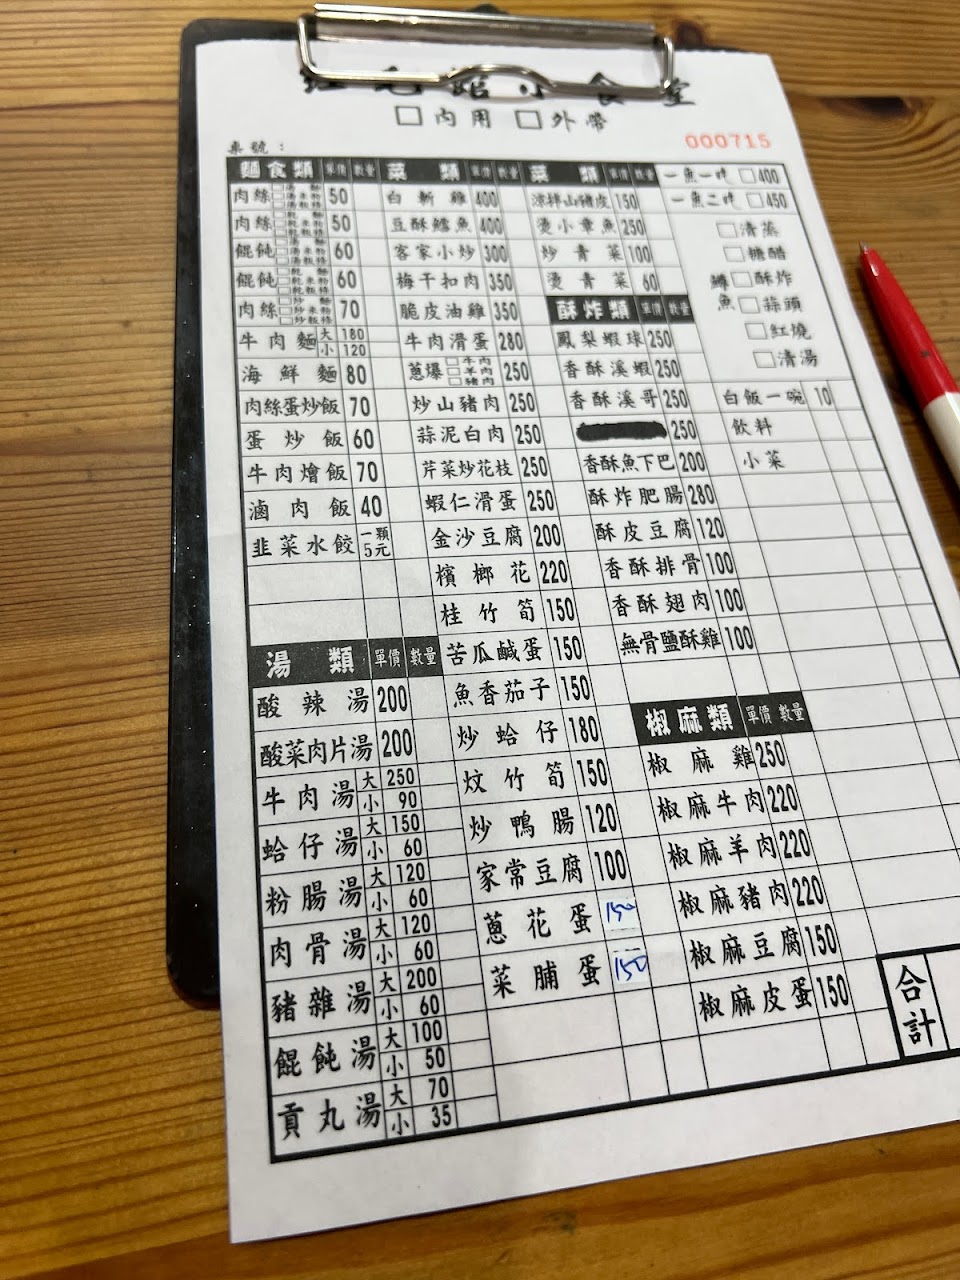 小食堂
□內用 □外帶
000715
桌號：
麵食類 單價 數量
肉絲 □湯麵 □湯米粉 □湯粄條 50
肉絲 □乾麵 □乾米粉 □乾粄條 50
餛飩 □湯麵 □湯米粉 □湯粄條 60
餛飩 □乾麵 □乾米粉 □乾粄條 60
肉絲 □炒麵 □炒米粉 □炒粄條 70
牛肉麵 大 180 小 120
海鮮麵 80
肉絲蛋炒飯 70
蛋炒飯 60
牛肉燴飯 70
滷肉飯 40
韭菜水餃 一顆5元
湯類 單價 數量
酸辣湯 200
酸菜肉片湯 200
牛肉湯 大 250 小 90
蛤仔湯 大 150 小 60
粉腸湯 大 120 小 60
肉骨湯 大 120 小 60
豬雜湯 大 200 小 60
餛飩湯 大 100 小 50
貢丸湯 大 70 小 35
菜類 單價 數量
白斬雞 400
豆酥鱈魚 400
客家小炒 300
梅干扣肉 350
脆皮油雞 350
牛肉滑蛋 280
蔥爆 □牛肉 □羊肉 □豬肉 250
炒山豬肉 250
蒜泥白肉 250
芹菜炒花枝 250
蝦仁滑蛋 250
金沙豆腐 200
檳榔花 220
桂竹筍 150
苦瓜鹹蛋 150
魚香茄子 150
炒蛤仔 180
炆竹筍 150
炒鴨腸 120
家常豆腐 100
蔥花蛋 150
菜脯蛋 150
菜類 單價 數量
涼拌山豬皮 150
燙小章魚 250
炒青菜 100
燙青菜 60
酥炸類 單價 數量
鳳梨蝦球 250
香酥溪蝦 250
香酥溪哥 250
250
香酥魚下巴 200
酥炸肥腸 280
酥皮豆腐 120
香酥排骨 100
香酥翅肉 100
無骨鹽酥雞 100
椒麻類 單價 數量
椒麻雞 250
椒麻牛肉 220
椒麻羊肉 220
椒麻豬肉 220
椒麻豆腐 150
椒麻皮蛋 150
一魚一吃 □400
一魚二吃 □450
鱒魚
□清蒸
□糖醋
□酥炸
□蒜頭
□紅燒
□清湯
白飯一碗 10
飲料
小菜
合計